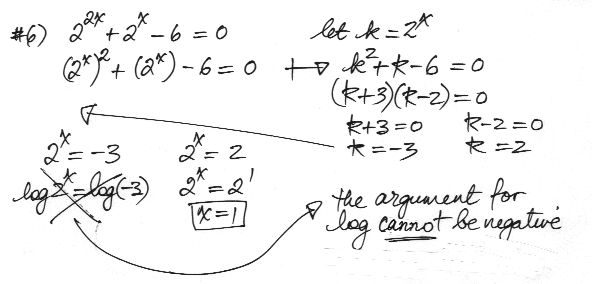 #6) 2^{2x} + 2^x - 6 = 0
(2^x)^2 + (2^x) - 6 = 0
let k = 2^x
k^2 + k - 6 = 0
(k+3)(k-2) = 0
k+3 = 0 k-2 = 0
k = -3 k = 2
2^x = -3 2^x = 2
log 2^x = log(-3) 2^x = 2^1
x = 1
the argument for
log cannot be negative